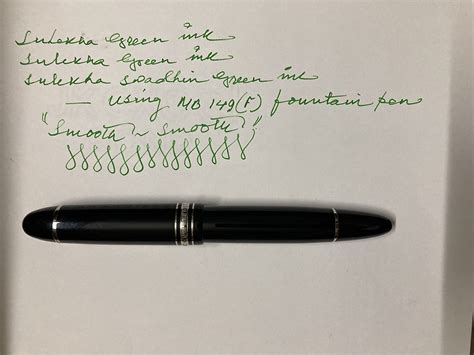 Sulekha Green ink
Sulekha Green ink
Sulekha Swadhin Green ink
— using MB 149(F) fountain pen
"Smooth ~ smooth!"